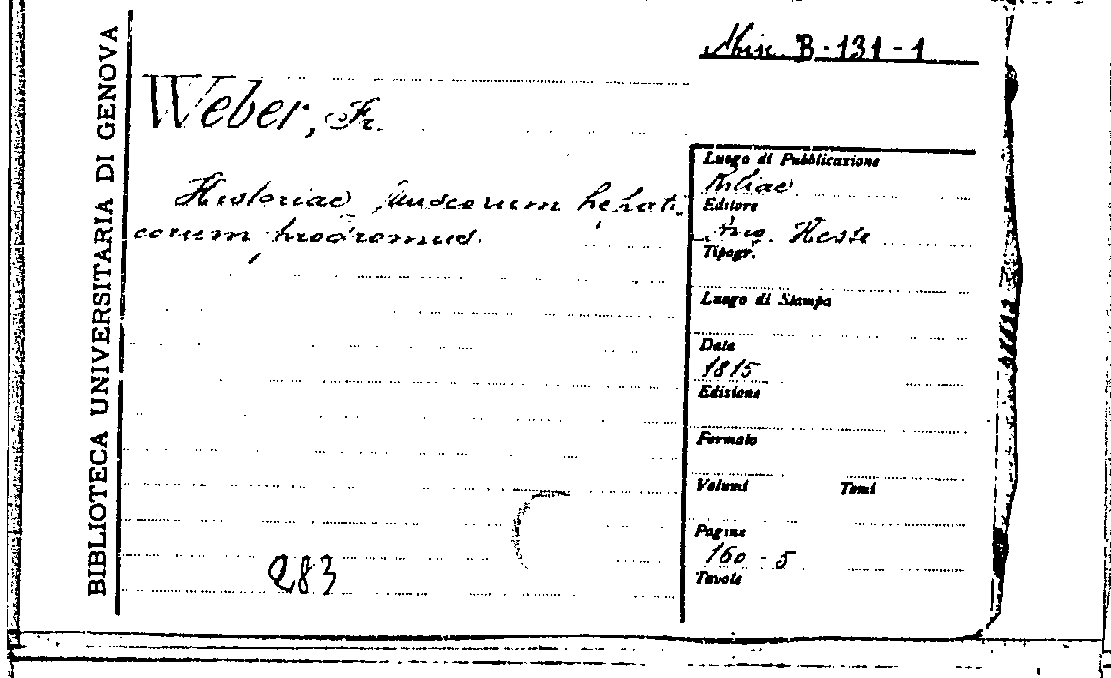 BIBLIOTECA UNIVERSITARIA DI GENOVA
Misc. B-131-1
Weber, Fr.
Historiae muscorum hepati-
corum prodromus.
Luogo di Pubblicazione
Kiliae
Editore
Aug. Hesse
Tipogr.
Luogo di Stampa
Data
1815
Edizione
Formato
Volumi Tomi
Pagine
160 - 5
Tavole
283